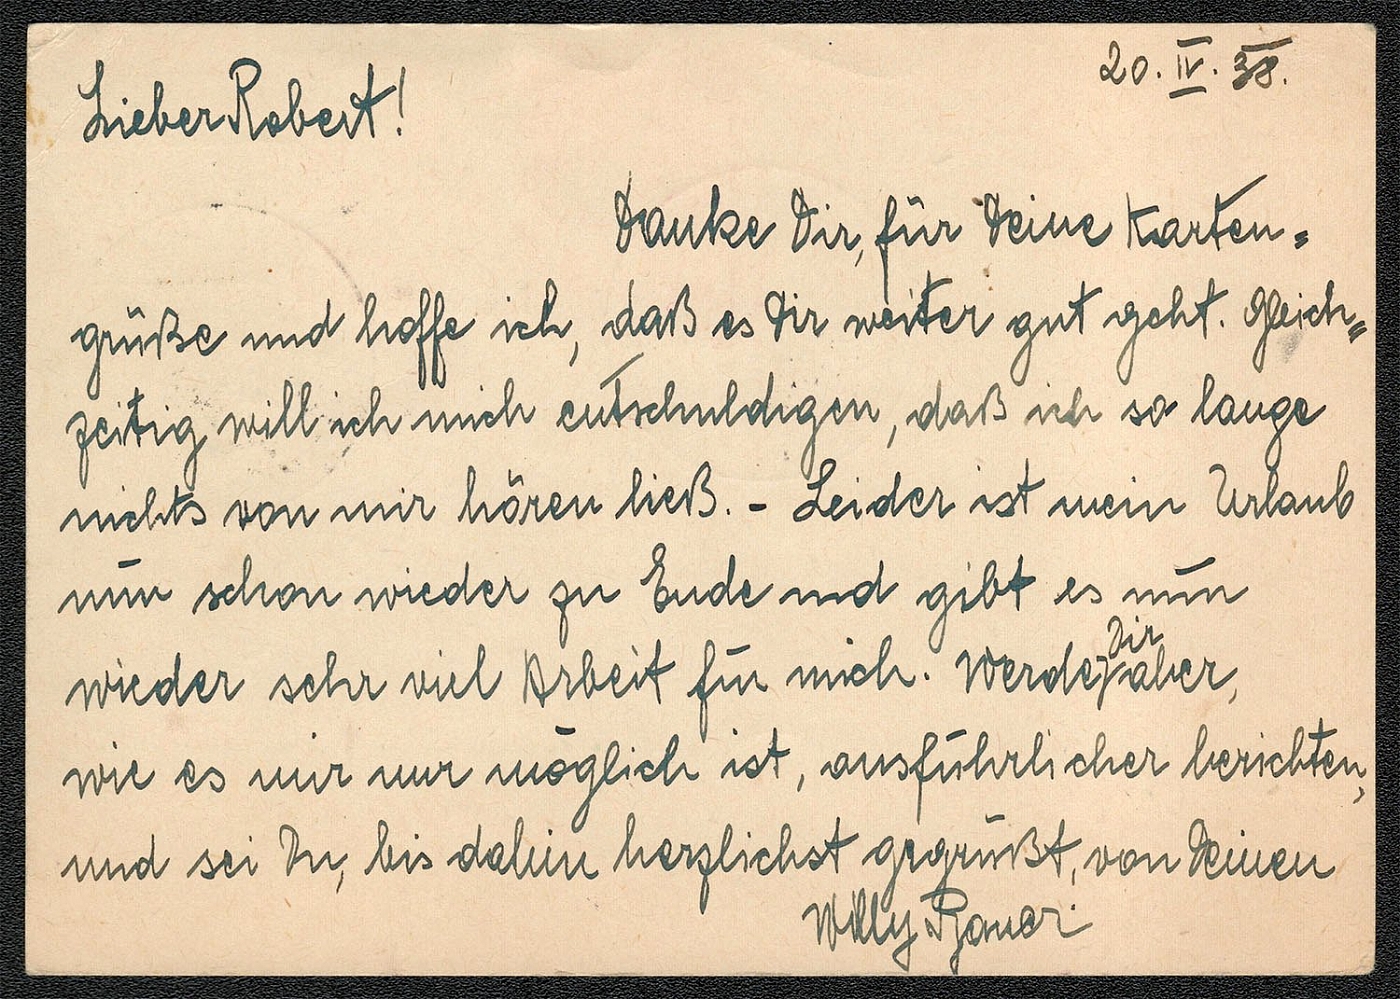 20. IV. 38.
Lieber Robert!
Danke Dir, für Deine Karten=
grüße und hoffe ich, daß es Dir weiter gut geht. Gleich=
zeitig will ich mich entschuldigen, daß ich so lange
nichts von mir hören ließ. - Leider ist mein Urlaub
nun schon wieder zu Ende und gibt es nun
wieder sehr viel Arbeit für mich. Werde Dir aber,
wie es mir nur möglich ist, ausführlicher berichten,
und sei Du, bis dahin herzlichst gegrüßt, von Deinen
Willy Bauer.